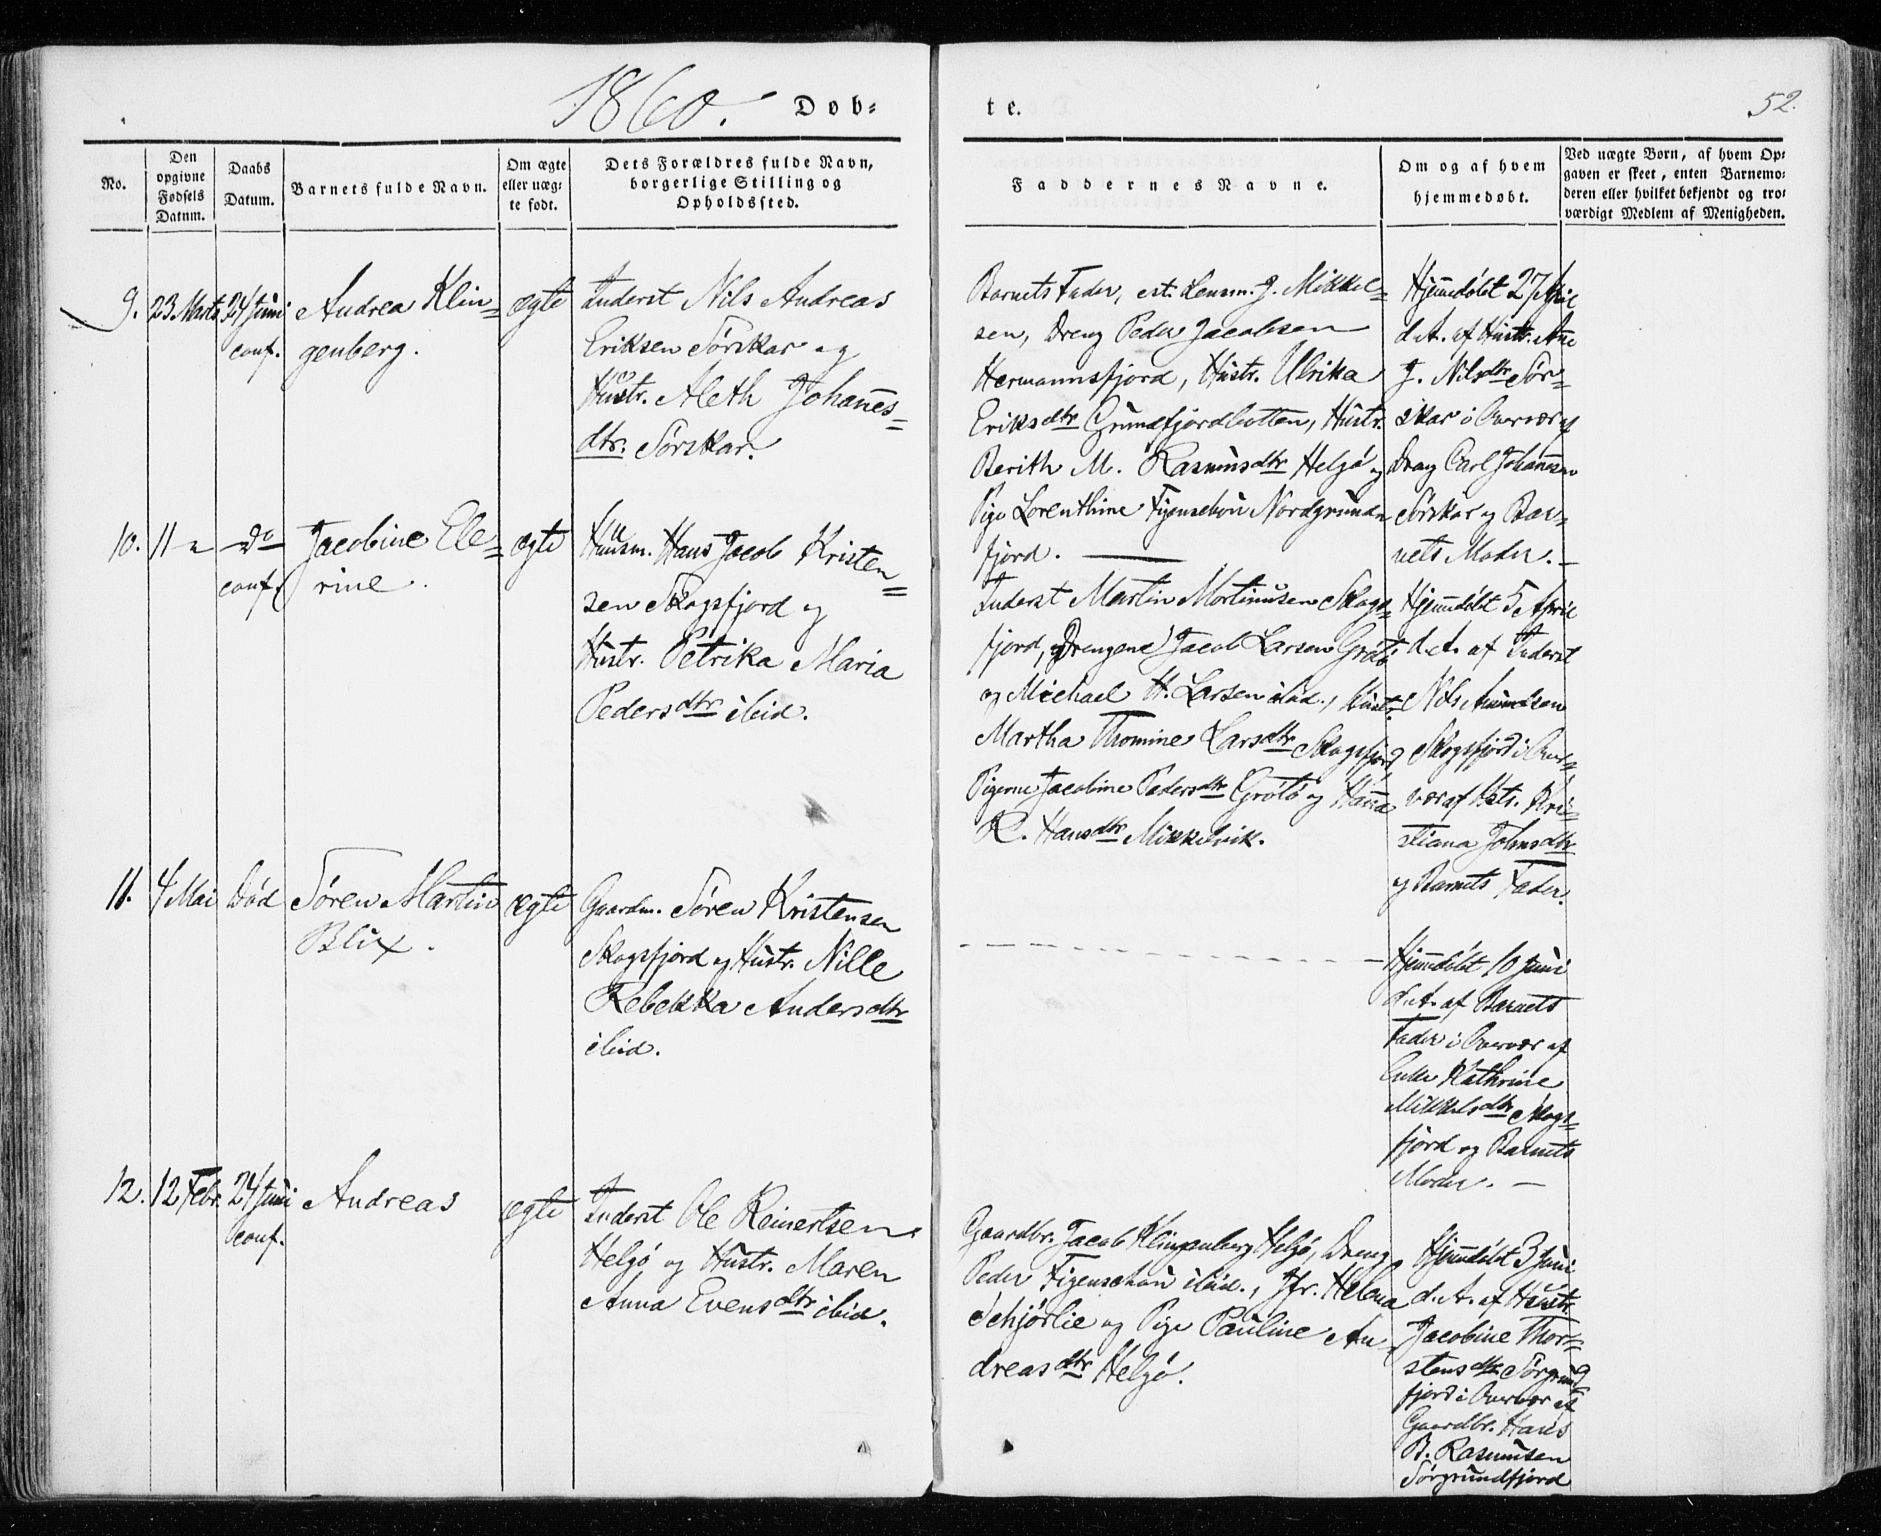 1860. Døb-
te.
52.
No.
Den opgivne Fødsels Datum.
Daabs Datum.
Barnets fulde Navn.
Om ægte eller uæg-
te født.
Dets Forældres fulde Navn,
borgerlige Stilling og
Opholdssted.
Faddernes Navne.
Om og af hvem
hjemmedøbt.
Ved uægte Børn, af hvem Op-
gaven er skeet, enten Barnemo-
deren eller hvilket bekjendt og tro-
værdigt Medlem af Menigheden.
9. 23 Marts 24 Juni conf.
Andrea Klin-
genberg.
ægte
Inderst Nils Andreas
Eriksen Sørskar og
Hustr. Aleth Johannes-
dtr. Sørskar.
Barnets Fader, est. Lensm. J. Mikkel-
sen, Dreng Peder Jacobsen
Hermannsfjord, Hustr. Ulrika
Eriksdtr Grundfjordbotten, Hustr.
Berith M. Rasmusdtr Helgø og
Pige Lorenthine Figenschou Nordgrund-
fjord.
Hjemmdøbt 27 April
d.A. af Hustr. Ane
J. Nilsdtr Sør-
skar i Overvær af
Dreng Carl Johannsen
Sørskar og Bar-
nets Moder.
10. 11 " Do conf.
Jacobine Ele-
rine.
ægte
Huusm. Hans Jacob Kristen-
sen Skogsfjord og
Hustr. Petrika Maria
Pedersdtr ibid.
Inderst Martin Mortinusen Skogs-
fjord, Drengene Jacob Larsen Grøtø
og Michael H. Larsen ibid., Hustr.
Martha Thomine Larsdtr Skogsfjord,
Pigerne Jacobine Pedersdtr Grøtø og Hanna
R. Hansdtr Mikkelvik.
Hjemmdøbt 5 April
d.A. af Inderst
Nils Amundsen
Skogsfjord i Over-
vær af Hstr. Kri-
stiana Johnsdtr
og Barnets Fader.
11. 4 Mai Død
Søren Martin
Blix.
ægte
Gaardm. Søren Kristensen
Skogsfjord og Hustr. Nille
Rebekka Andersdtr
ibid.
Hjemmdøbt 10 Juni
d.A. af Barnets
Fader i Overvær af
Enke Kathrine
Mikkelsdtr Skogs-
fjord og Barnets
Moder.
12. 12 Febr. 24 Juni conf.
Andreas
ægte
Inderst Ole Reinertsen
Helgø og Hustr. Maren
Anna Evensdtr ibid.
Gaardbr. Jacob Klingenberg Helgø, Dreng
Peder Figenschou ibid., Jfr. Helena
Schjørlie og Pige Pauline An-
dreasdtr Helgø.
Hjemmdøbt 3 Juni
d.A. af Hustr.
Jacobine Thor-
stensdtr Sørgrund-
fjord i Overvær af
Gaardbr. Hans
B. Rasmusen
Sørgrundfjord